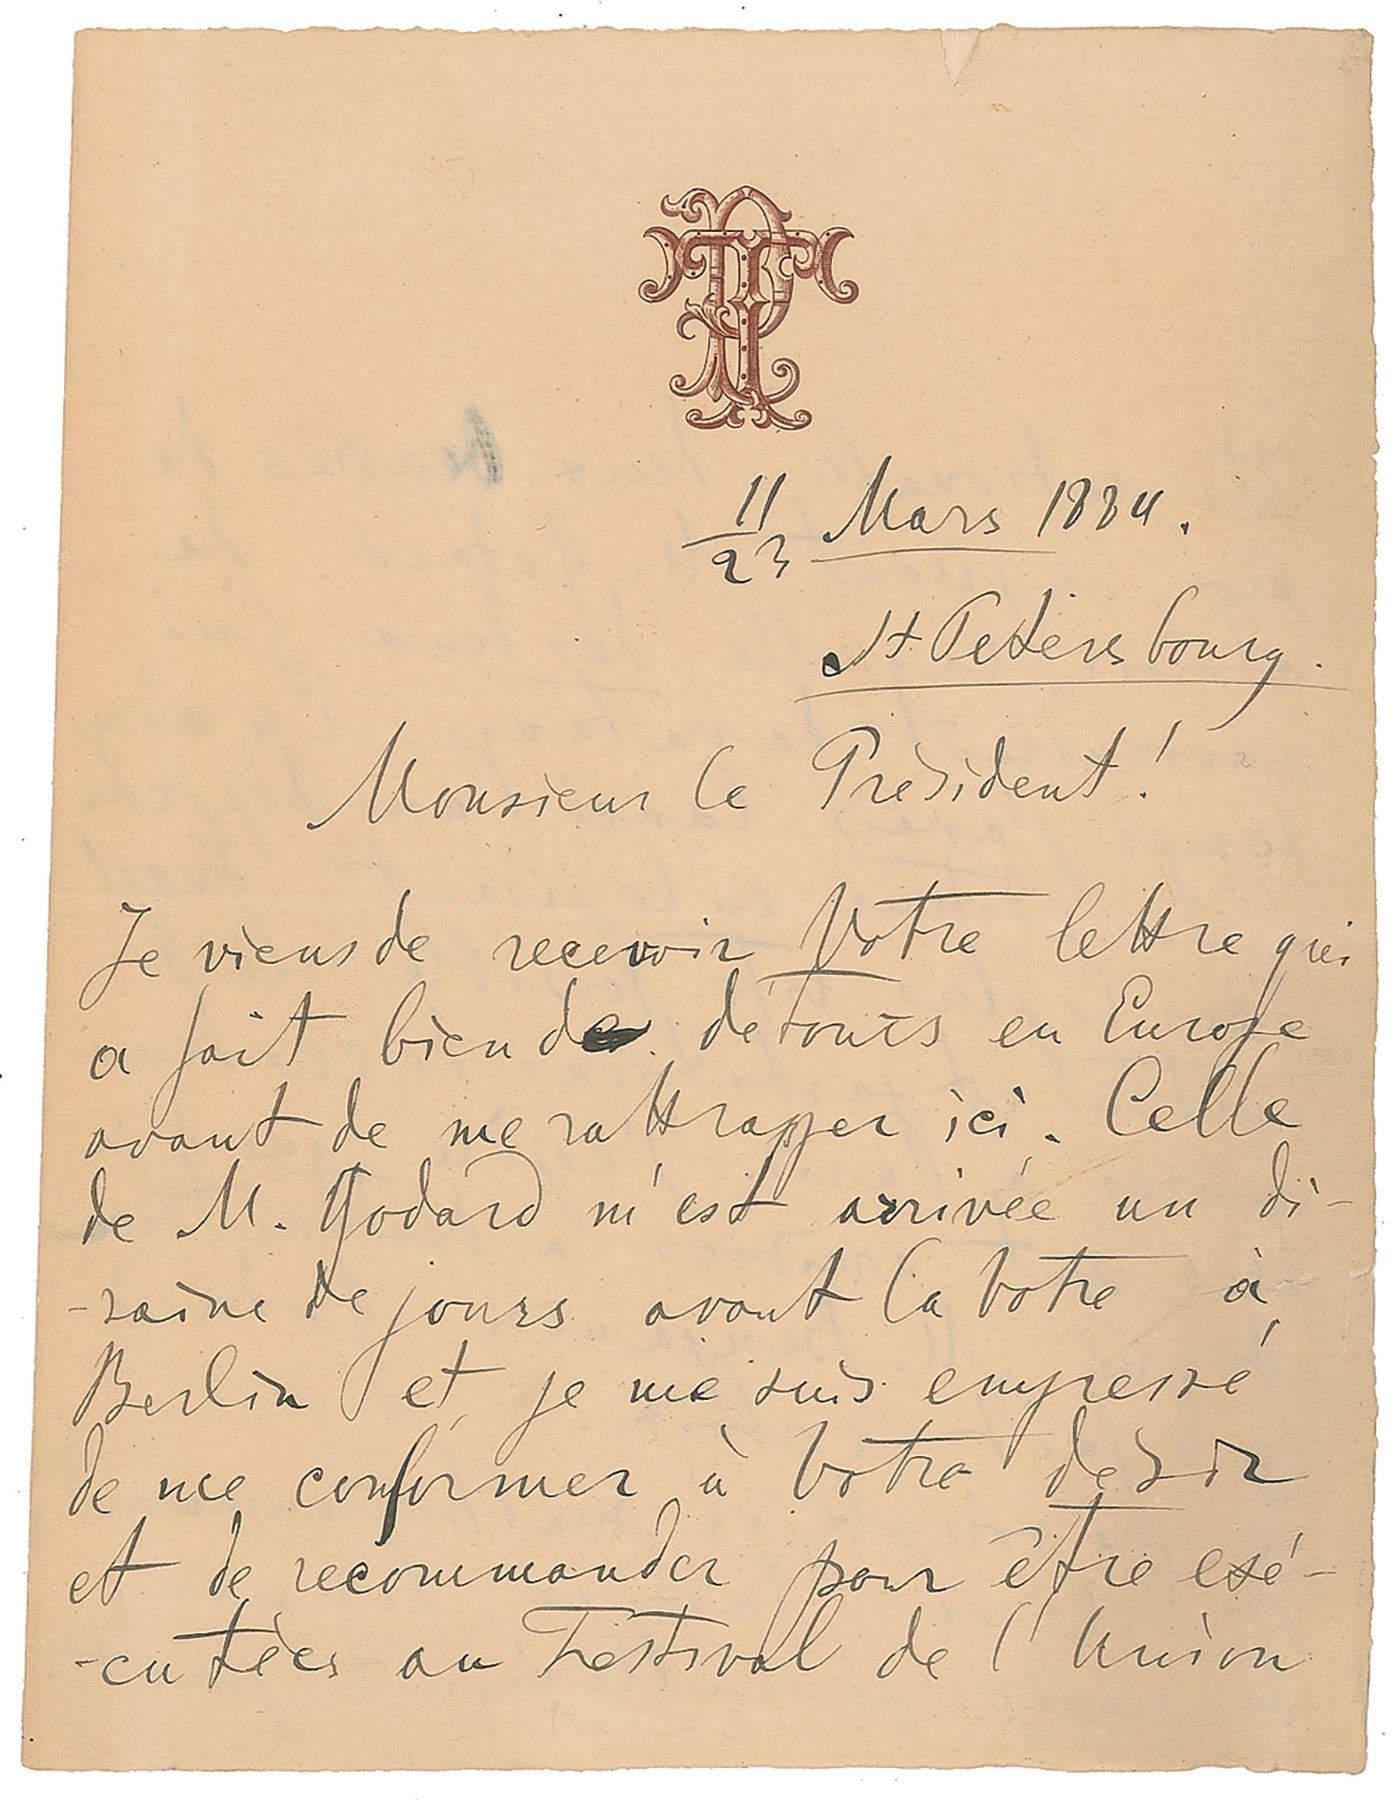 PT
11/23 Mars 1884.
St Petersbourg.
Monsieur le Président!
Je viens de recevoir Votre lettre qui
a fait bien de détours en Europe
avant de me rattrapper ici. Celle
de M. Godard m'est arrivée un di-
-zaine de jours avant la Votre à
Berlin et je me suis empressé
de me conformer à Votre désir
et de recommander pour être exé-
-cutées au Festival de l'Union